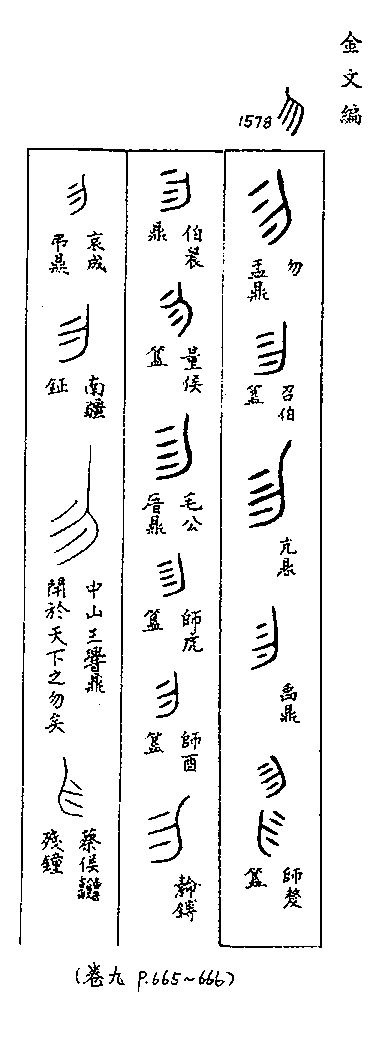 金文編
1578
勿
盂鼎
召伯
簋
亢鼎
禹鼎
師𠩺
簋
伯㲃
鼎
量侯
簋
毛公
厝鼎
師虎
簋
師酉
簋
鎛
哀成
弔鼎
南疆
鉦
中山王𰯼鼎
閈於天下之勿矣
蔡侯
殘鐘
(卷九 P.665~666)